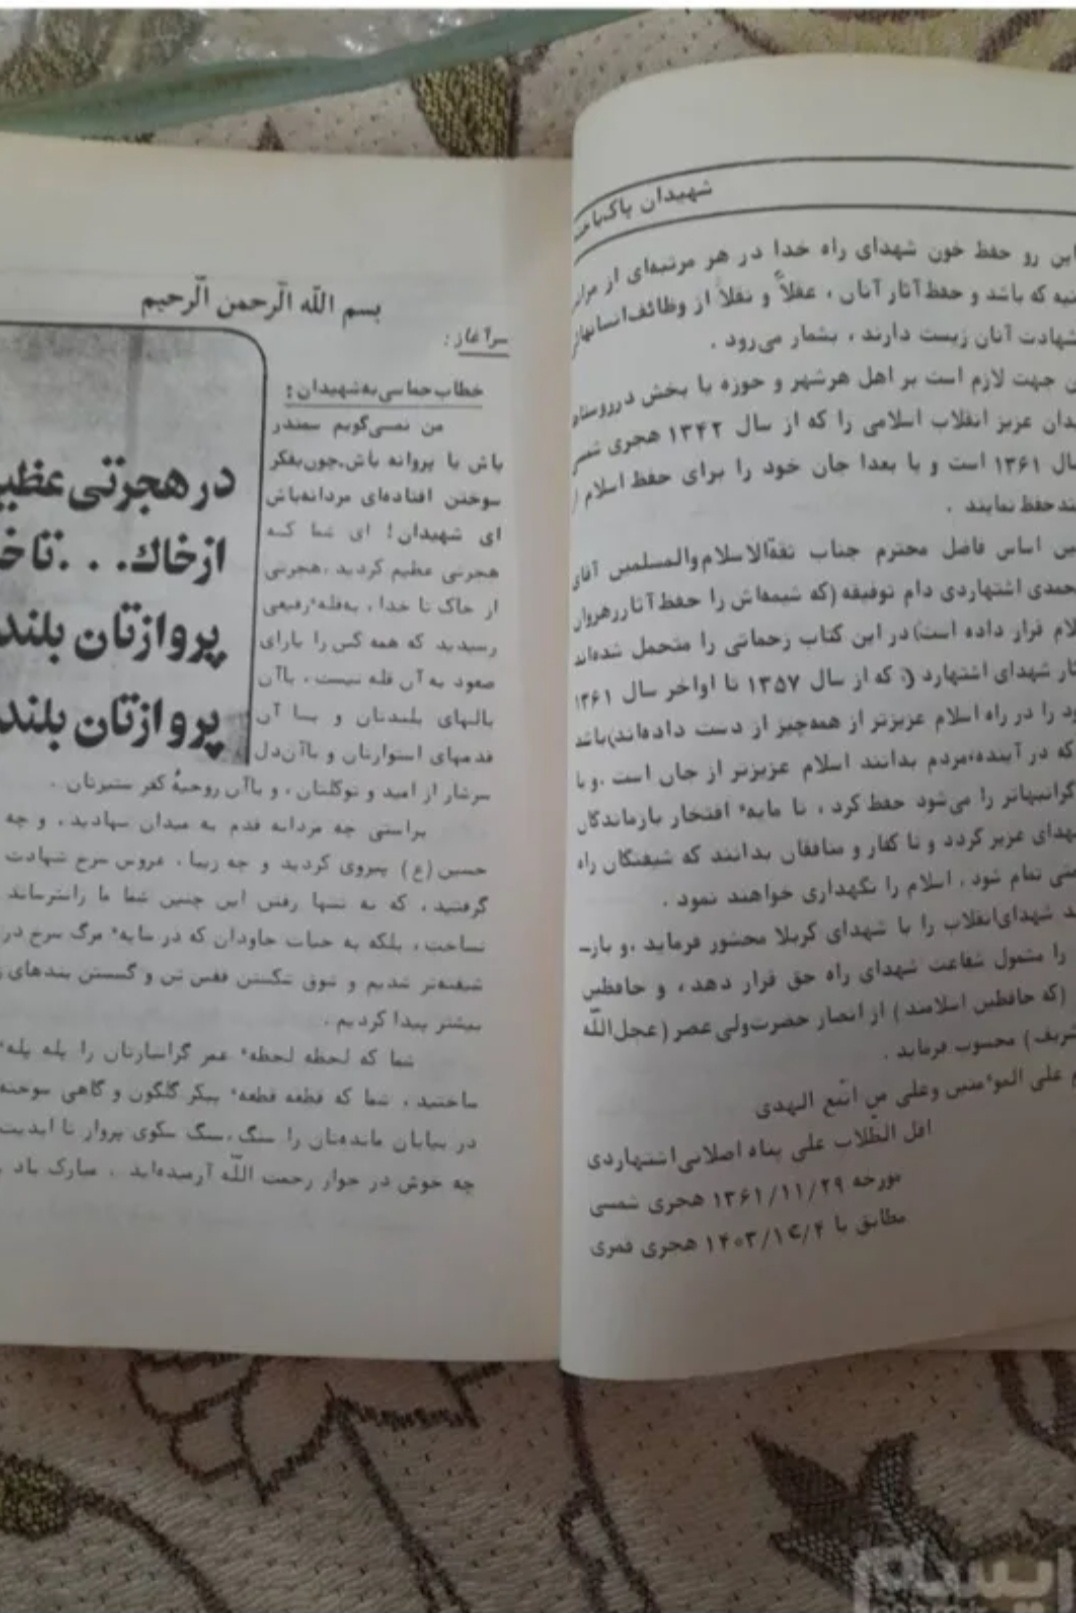 شهیدان پاک‌باخته
این رو حفظ خون شهدای راه خدا در هر مرتبه‌ای از
که باشد و حفظ آثار آنان ، عقلاً و نقلاً از وظائف
شهادت آنان زیست دارند ، بشمار می‌رود .
جهت لازم است بر اهل هرشهر و حوزه یا بخش در
عزیز انقلاب اسلامی را که از سال ۱۳۴۲ هجری
۱۳۶۱ است و یا بعدا جان خود را برای حفظ اسلام
حفظ نمایند .
اساس فاضل محترم جناب ثقةالاسلام والمسلمین آقای
اشتهاردی دام توفیقه (که شیمه‌اش را حفظ آثار رهروان
قرار داده است) در این کتاب زحماتی را متحمل شده‌اند
شهدای اشتهارد (، که از سال ۱۳۵۷ تا اواخر سال ۱۳۶۱
را در راه اسلام عزیزتر از همه‌چیز از دست داده‌اند) باشد
که در آینده، مردم بدانند اسلام عزیزتر از جان است ، و با
گرانبهاتر را می‌شود حفظ کرد ، تا مایهٔ افتخار بازماندگان
عزیز گردد و تا کفار و منافقان بدانند که شیفتگان راه
تمام شود ، اسلام را نگهداری خواهند نمود .
شهدای انقلاب را با شهدای کربلا محشور فرماید ، و باز-
را مشمول شفاعت شهدای راه حق قرار دهد ، و حافظین
(که حافظین اسلامند) از انصار حضرت ولی عصر (عجل اللّه
محسوب فرماید .
علی المؤمنین وعلی من اتّبع الهدی
اقل الطّلاب علی پناه اصلانی اشتهاردی
مورخه ۱۳۶۱/۱۱/۲۹ هجری شمسی
مطابق با هجری قمری
بسم اللّه الرّحمن الرّحیم
سرآغاز :
خطاب حماسی به شهیدان :
من نمی‌گویم سمندر
باش یا پروانه باش، چون بفکر
سوختن افتاده‌ای مردانه باش
ای شهیدان ! ای شما که
هجرتی عظیم کردید ، هجرتی
از خاک تا خدا ، به قلهٔ رفیعی
رسیدید که همه کس را یارای
صعود به آن قله نیست ، با آن
بالهای بلندتان و با آن
قدمهای استوارتان و با آن دل
سرشار از امید و توکلتان ، و با آن روحیهٔ کفر ستیزتان .
در هجرتی
از خاک...تا
پروازتان بلند
پروازتان بلند
براستی چه مردانه قدم به میدان نهادید ، و چه
حسین (ع) پیروی کردید و چه زیبا ، عروس سرخ شهادت
گرفتید ، که نه تنها رفتن این چنین شما ما را نترساند
نساخت ، بلکه به حیات جاودان که در سایهٔ مرگ سرخ در
شیفته‌تر شدیم و شوق شکستن قفس تن و گسستن بندهای
بیشتر پیدا کردیم .
شما که لحظه لحظهٔ عمر گرانبارتان را پله پله
ساختید ، شما که قطعه قطعهٔ پیکر گلگون و گاهی سوخته
در بیابان مانده‌تان را سنگ ، سنگ سکوی پرواز تا ابدیت
چه خوش در جوار رحمت اللّه آرمیده‌اید . مبارک باد